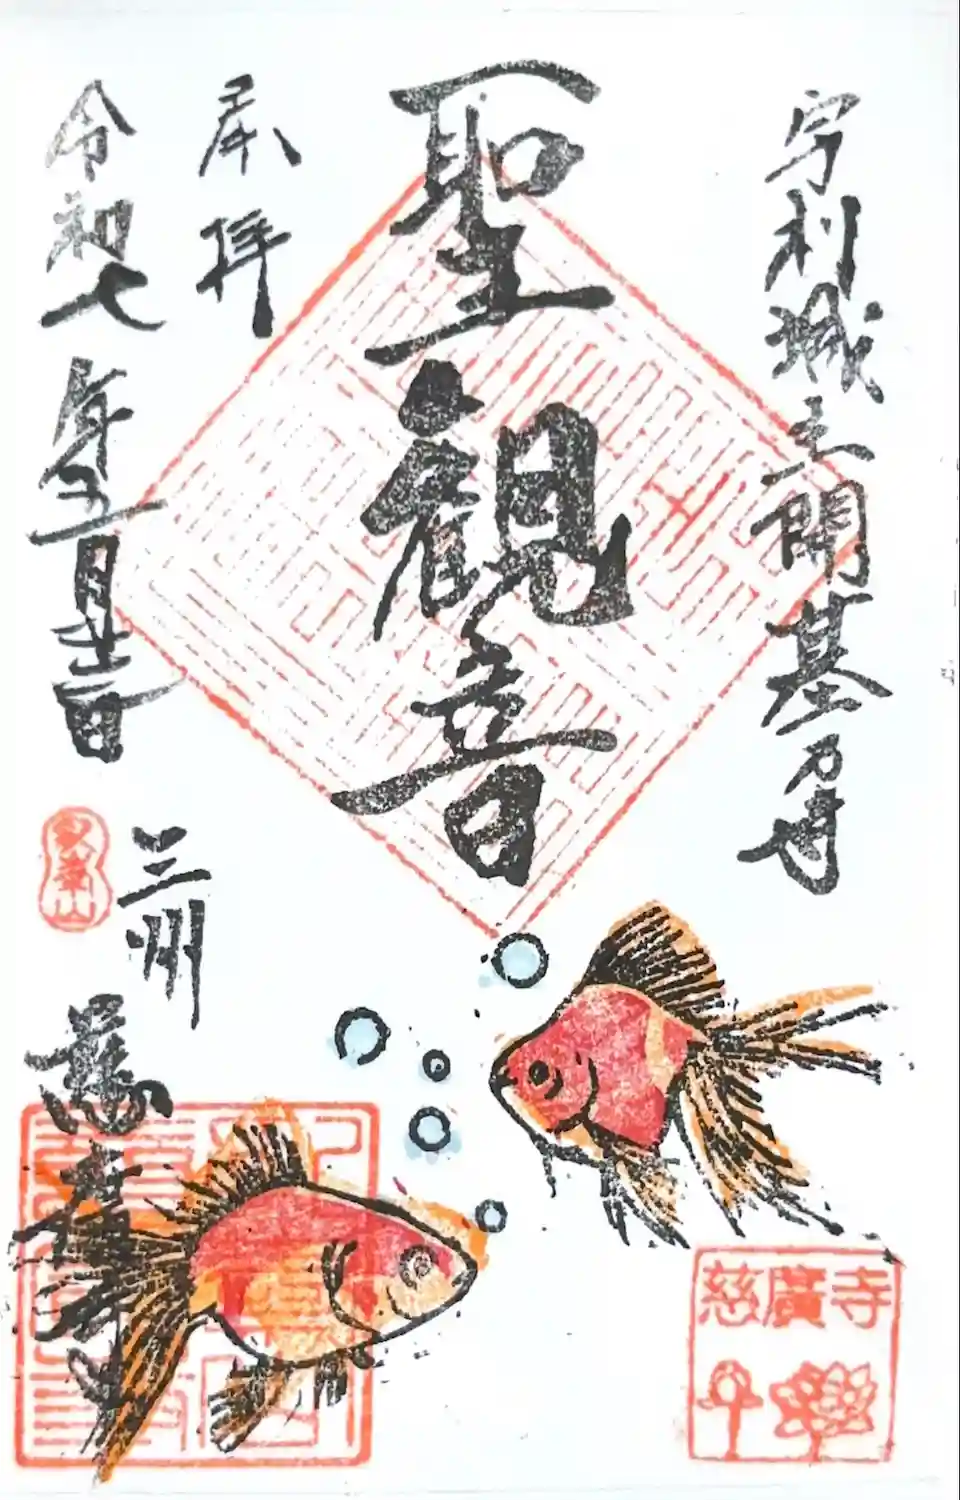 宇利城主開基乃寺
聖觀音
奉拝
令和七年五月廿二日
三州
慈廣寺
慈廣寺